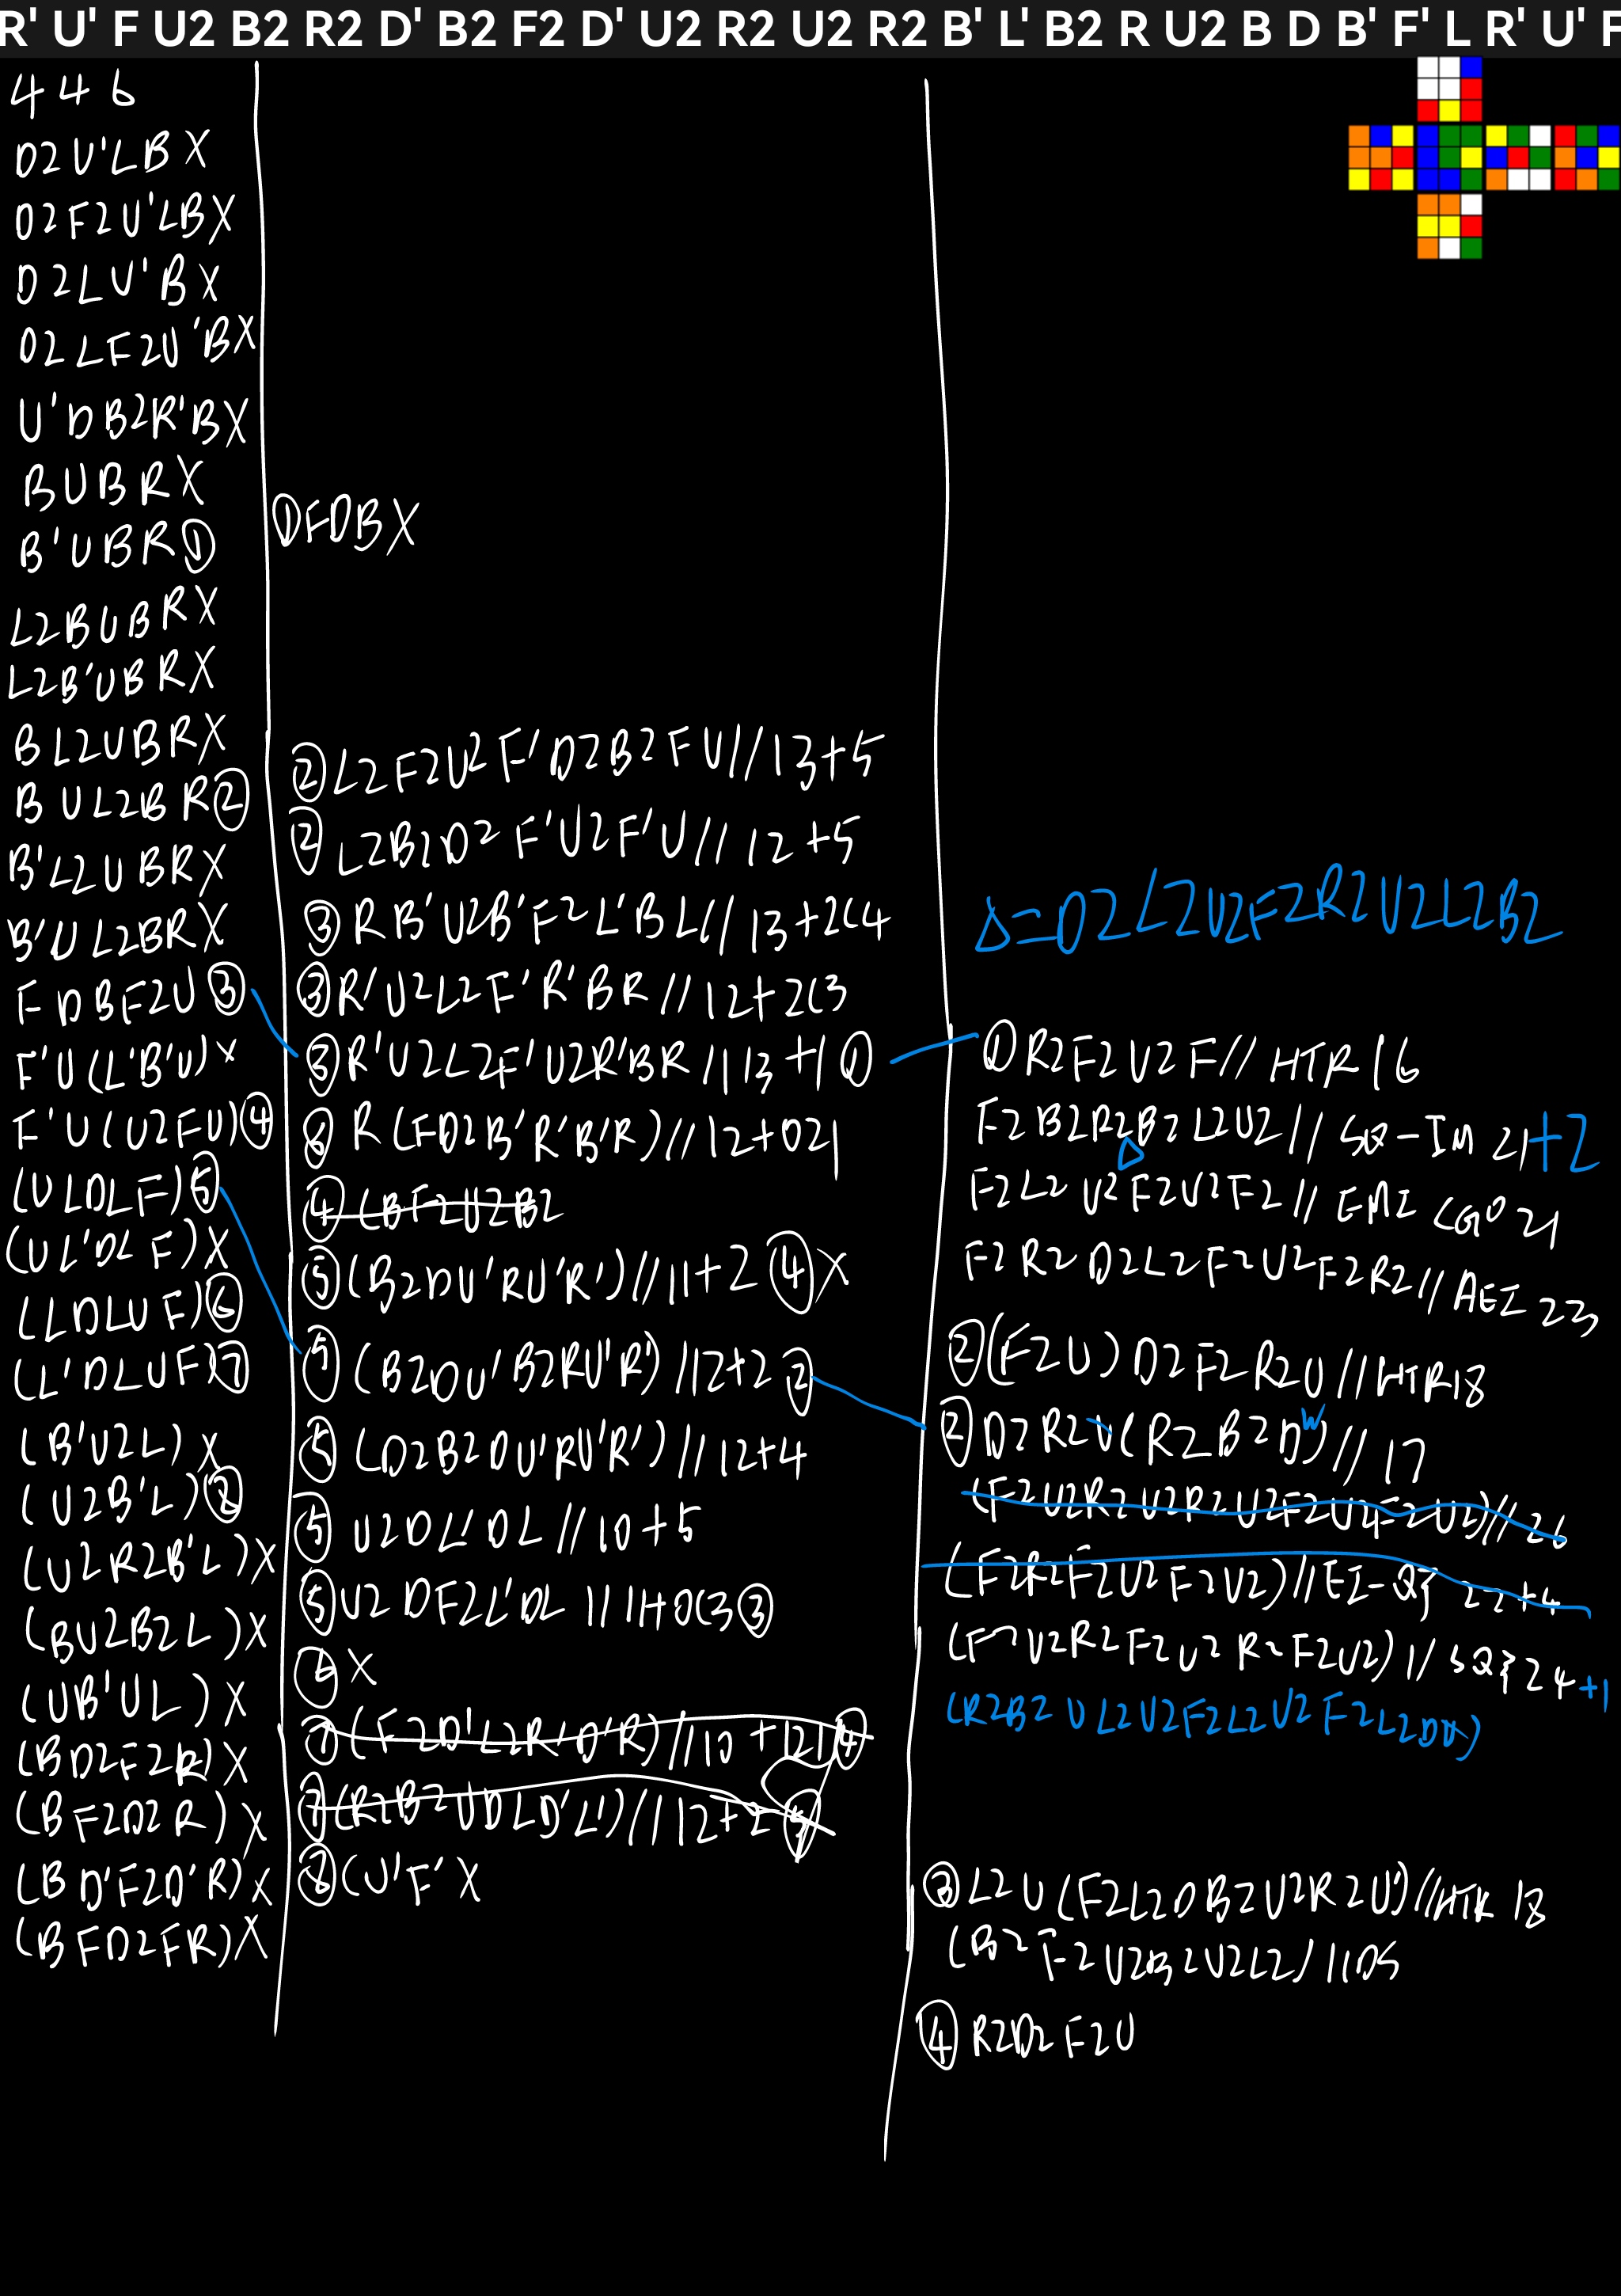 R' U' F U2 B2 R2 D' B2 F2 D' U2 R2 U2 R2 B' L' B2 R U2 B D B' F' L R' U' F
4 4 6
D2 U' L B X
D2 F2 U' L B X
D2 L U' B X
D2 L F2 U' B X
U' D B2 R' B X
B U B R X
B' U B R ①
L2 B U B R X
L2 B' U B R X
B L2 U B R X
B U L2 B R ②
B' L2 U B R X
B' U L2 B R X
F D B F2 U ③
F' U (L' B' U) X
F' U (U2 F U) ④
(U L D L F) ⑤
(U L' D L F) X
(L D L U F) ⑥
(L' D L U F) ⑦
(B' U2 L) X
(U2 B' L) ⑧
(U2 R2 B' L) X
(B U2 B2 L) X
(U B' U L) X
(B D2 F2 R) X
(B F2 D2 R) X
(B D' F2 D' R) X
(B F D2 F R) X
① F D B X
② L2 F2 U2 F' D2 B2 F U // 13+5
② L2 B2 D2 F' U2 F' U // 12+5
③ R B' U2 B' F2 L' B L // 13+2C4
③ R' U2 L2 F' R' B R // 12+2C3
③ R' U2 L2 F' U2 R' B R // 13+1 ①
R (F D2 B' R' B' R) // 12+021
④ (B F2 U2 B2
⑤ (B2 D U' R U' R') // 11+2 ④ X
⑤ (B2 D U' B2 R U' R') // 12+2 ②
⑤ (D2 B2 D U' R U' R') // 12+4
⑤ U2 D L' D L // 10+5
⑤ U2 D F2 L' D L // 11+0C3 ③
⑥ X
⑦ (F2 D' L2 R' D' R) // 10+121 ④
⑦ (R2 B2 U D L D' L') // 12+2
⑧ (U' F' X
Δ=D2 L2 U2 F2 R2 U2 L2 B2
① R2 F2 U2 F // HTR 16
F2 B2 R2 Δ B2 L2 U2 // SQ-IM 21+2
F2 L2 U2 F2 U2 F2 // EMI 21
F2 R2 D2 L2 F2 U2 F2 R2 // AEI 23
② (F2 U) D2 F2 R2 U // HTR 18
② D2 R2 U (R2 B2 D) // 17
(F2 U2 R2 U2 R2 U2 F2 U2 F2 U2) // 26
(F2 R2 F2 U2 F2 U2) // EI-Q3 22+4
(F2 U2 R2 F2 U2 R2 F2 U2) // SQ3 24+1
(R2 B2 U L2 U2 F2 L2 U2 F2 L2 D
③ L2 U (F2 L2 D B2 U2 R2 U') // HTR 18
(B2 F2 U2 B2 U2 L2) // DS
④ R2 D2 F2 U